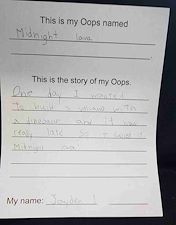 This is my Oops named
Midnight lava
This is the story of my Oops.
One day I wanted
to build a volcano with
a dinosaur and it was
really late so I called it
Midnight
My name: Jayden